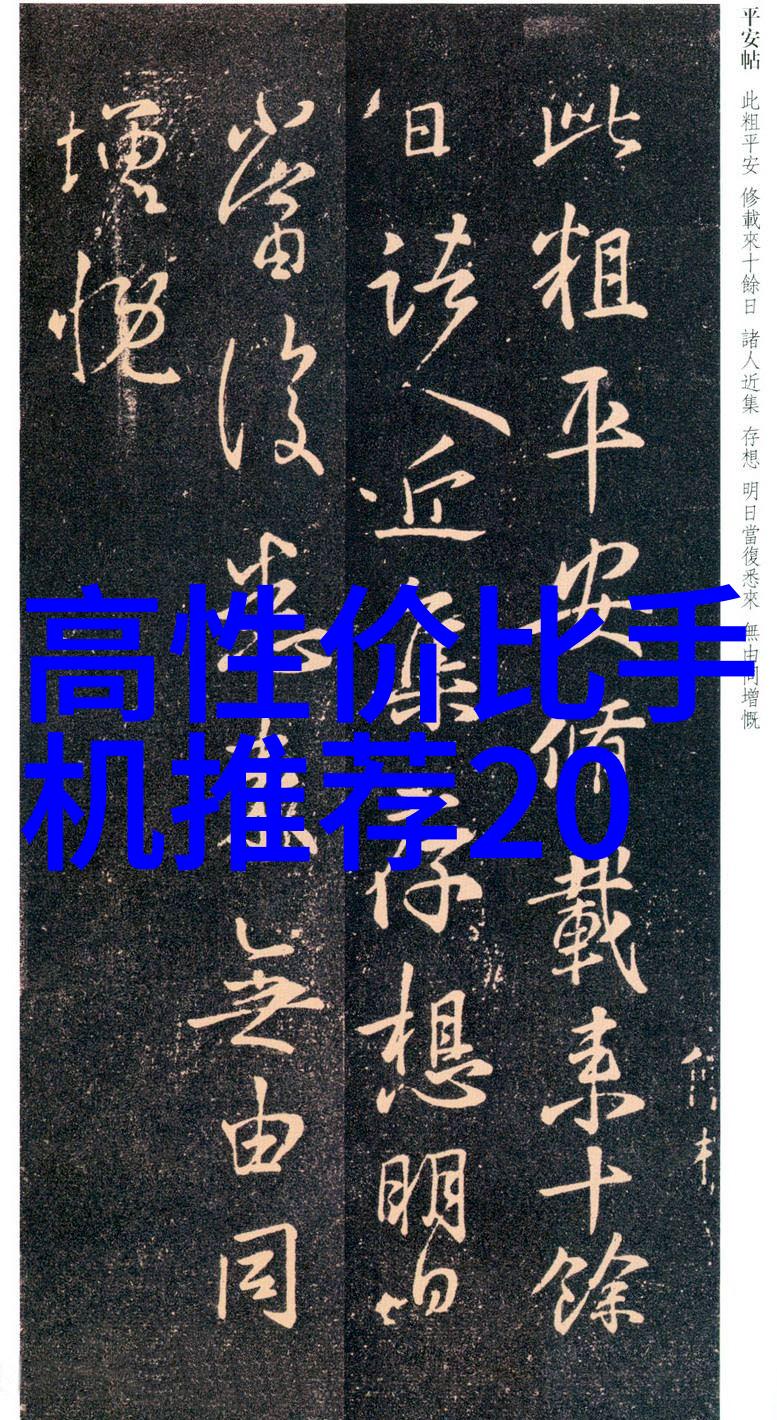 平安帖 此粗平安 修載來十餘日 諸人近集 存想 明日當復悉來 無由同增慨
此粗平安脩載来十餘
日諸人近集存想明日
當復悉来無由同
增慨
高性价比手
机推荐20